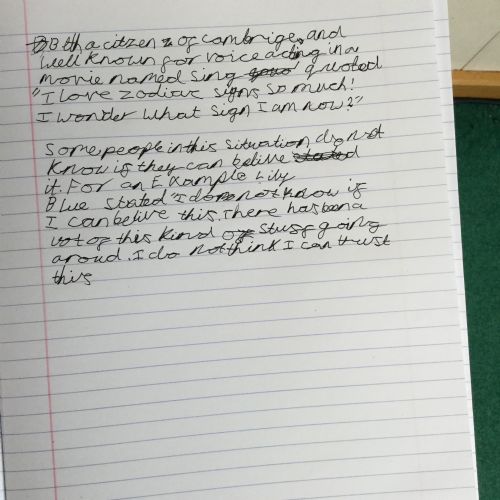 BBth a citzen z of cambrige, and
well known for voice acting in a
movie named Sing quoted
"I love zodiac signs so much!
I wonder what sign I am now?"
Some people in this situation do not
know if they can belive
it. For an Example Lily
Blue stated I do not know if
I can belive this. There has ben a
lot of this kind of stuff going
aroud. I do not think I can trust
this